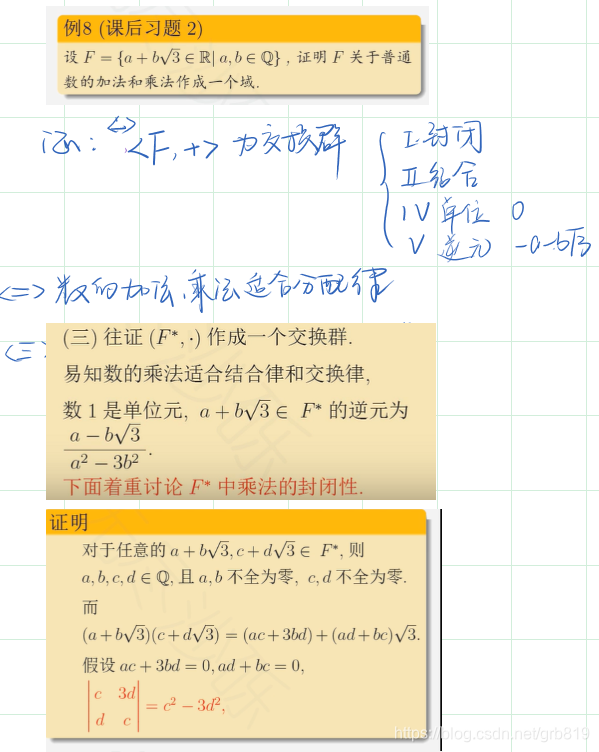 例8 (课后习题 2)
设 F = {a + b√3 ∈ ℝ| a, b ∈ ℚ}, 证明 F 关于普通
数的加法和乘法作成一个域.
证: <一> <F, +> 为交换群
I.封闭
II 结合
IV 单位 0
V 逆元 -a-b√3
<二> 数的加法、乘法适合分配律
<三>
(三) 往证 (F*, ·) 作成一个交换群.
易知数的乘法适合结合律和交换律,
数 1 是单位元, a + b√3 ∈ F* 的逆元为
(a − b√3)/(a² − 3b²).
下面着重讨论 F* 中乘法的封闭性.
证明
对于任意的 a + b√3, c + d√3 ∈ F*, 则
a, b, c, d ∈ ℚ, 且 a, b 不全为零, c, d 不全为零.
而
(a + b√3)(c + d√3) = (ac + 3bd) + (ad + bc)√3.
假设 ac + 3bd = 0, ad + bc = 0,
|c 3d|
|d c| = c² − 3d²,
https://blog.csdn.net/grb819